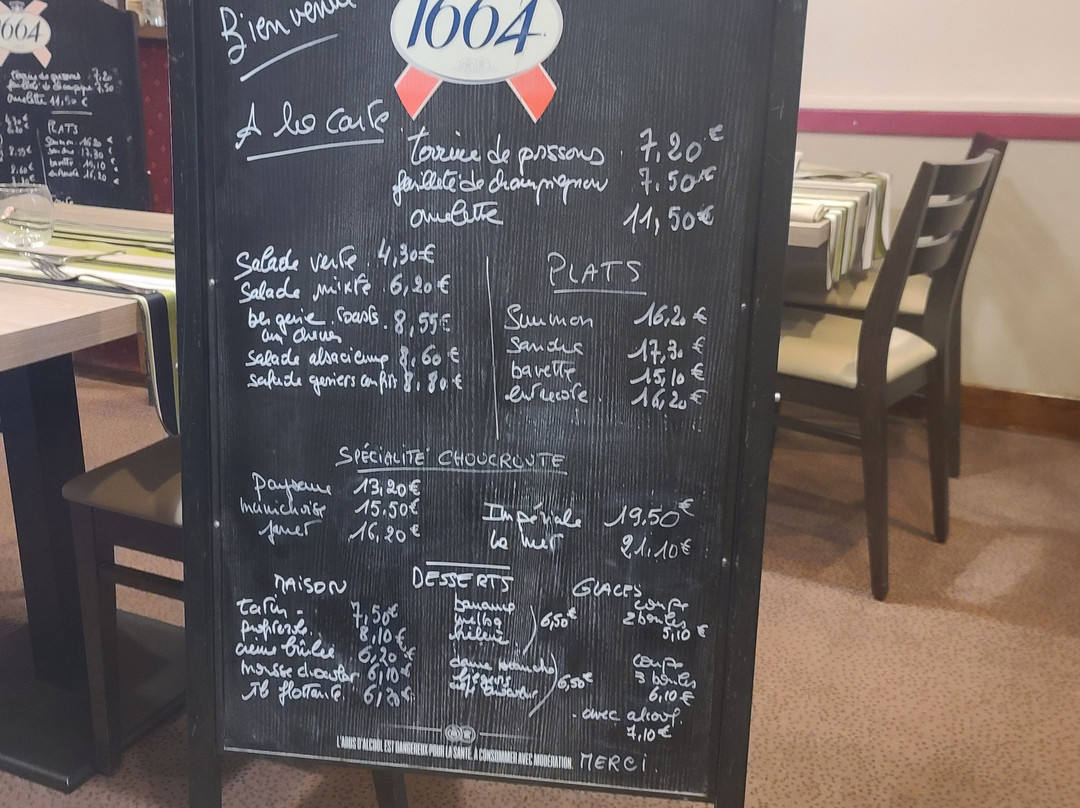 Bienvenue
1664
A la carte
terrine de poissons 7,20€
feuilleté de champignon 7,50€
omelette 11,50€
Salade verte 4,30€
Salade mixte 6,20€
bergerie toasts 8,55€
au chèvre
salade alsacienne 8,60€
salade gesiers confits 8,80€
PLATS
Saumon 16,20€
Sandre 17,30€
bavette 15,10€
entrecote 16,20€
SPÉCIALITÉ CHOUCROUTE
paysanne 13,20€
munichoise 15.50€
jarret 16,20€
Impériale 19,50€
la mer 21,10€
MAISON
tatin 7,50€
profiterole 8,10€
crème brûlée 6,20€
mousse chocolat 6,10€
île flottante 6,20€
DESSERTS
banane
melba
hélène
6,50€
dame blanche
liégeois
6,50€
GLACES
coupe
2 boules
5,10€
coupe
3 boules
6,10€
avec alcool
7,10€
L'ABUS D'ALCOOL EST DANGEREUX POUR LA SANTÉ, À CONSOMMER AVEC MODÉRATION.
MERCI.